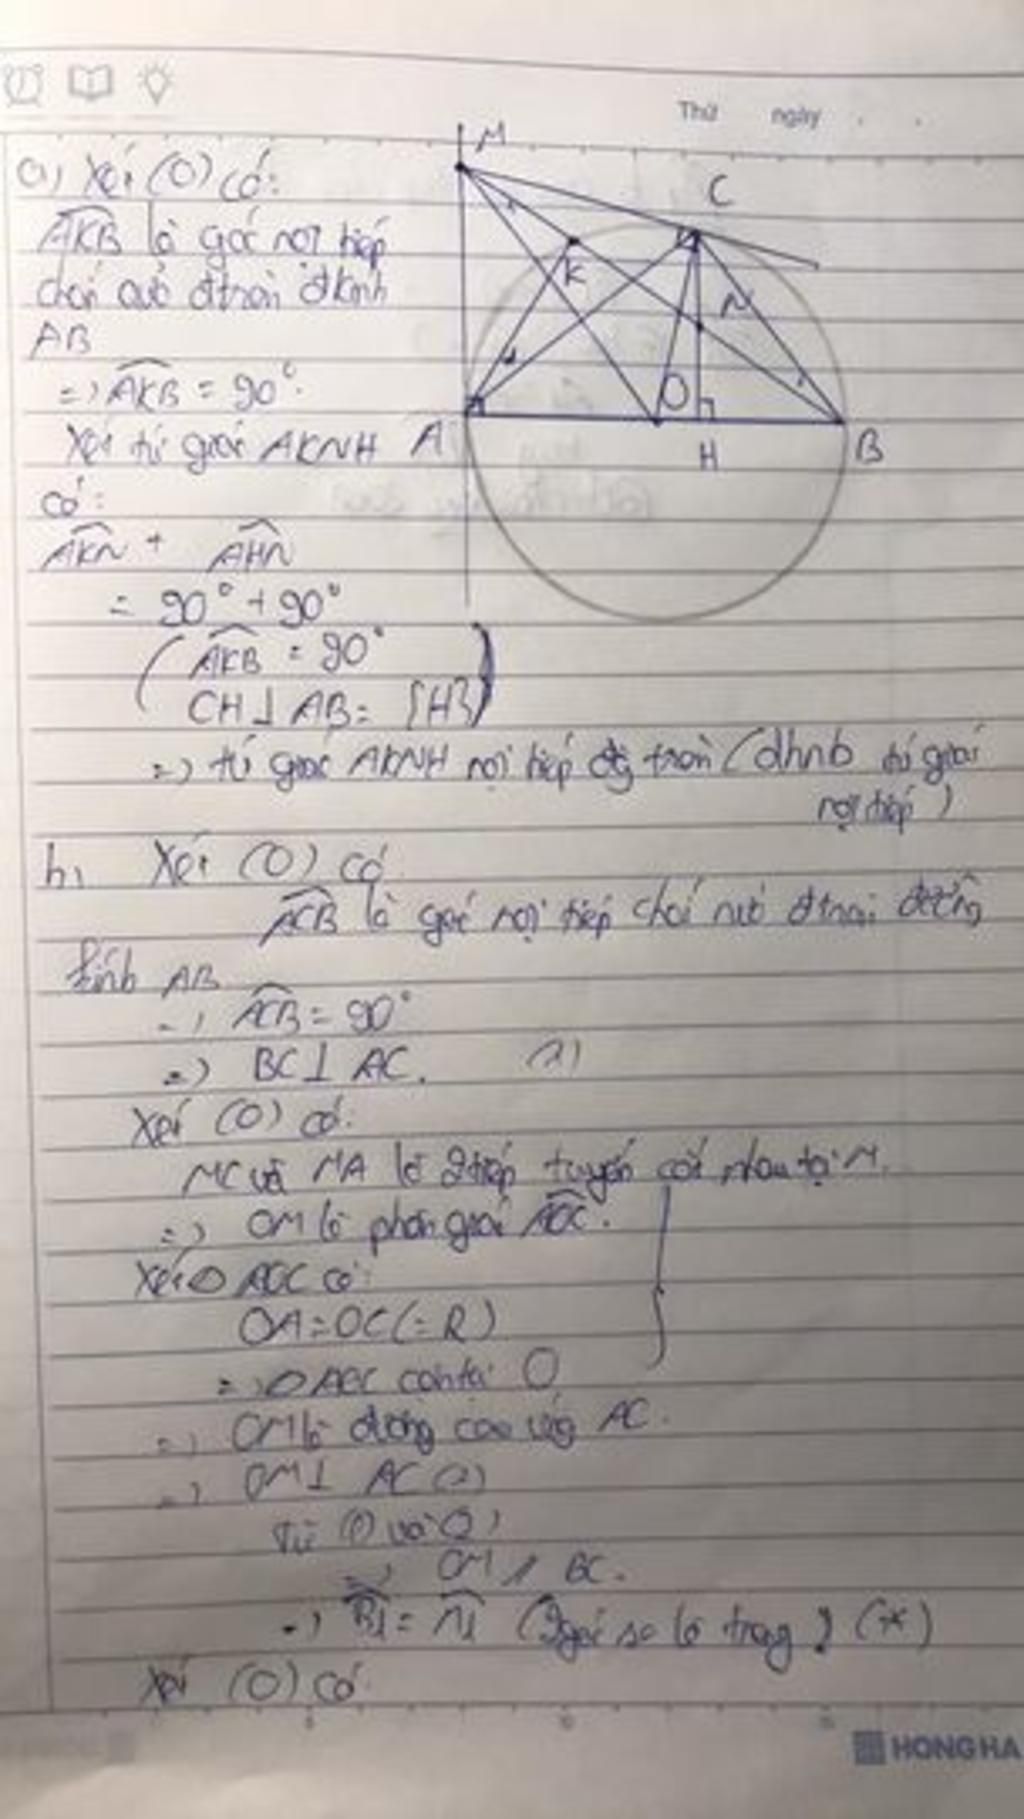 Thứ ngày
M
C
K
N
O
A
H
B
a) Xét (O) có:
AKB là góc nội tiếp
chắn nửa đtròn đkính
AB
=> AKB = 90°.
Xét tứ giác AKNH
có:
AKN + AHN
= 90° + 90°
( AKB = 90°
CH ⊥ AB = {H} )
=> tứ giác AKNH nội tiếp đg tròn (dhnb tứ giác
nội tiếp)
b, Xét (O) có
ACB là góc nội tiếp chắn nửa đtròn đường
kính AB
=> ACB = 90°
=> BC ⊥ AC. (1)
Xét (O) có:
MC và MA là 2 tiếp tuyến cắt nhau tại M.
=> OM là phân giác AOC.
Xét △ AOC có:
OA = OC (= R)
=> △ AOC cân tại O
=> OM là đường cao ứng AC.
=> OM ⊥ AC (2)
Từ (1) và (2)
=> OM // BC.
=> B1 = M1 (2 góc so le trong) (*)
Xét (O) có
HONG HA